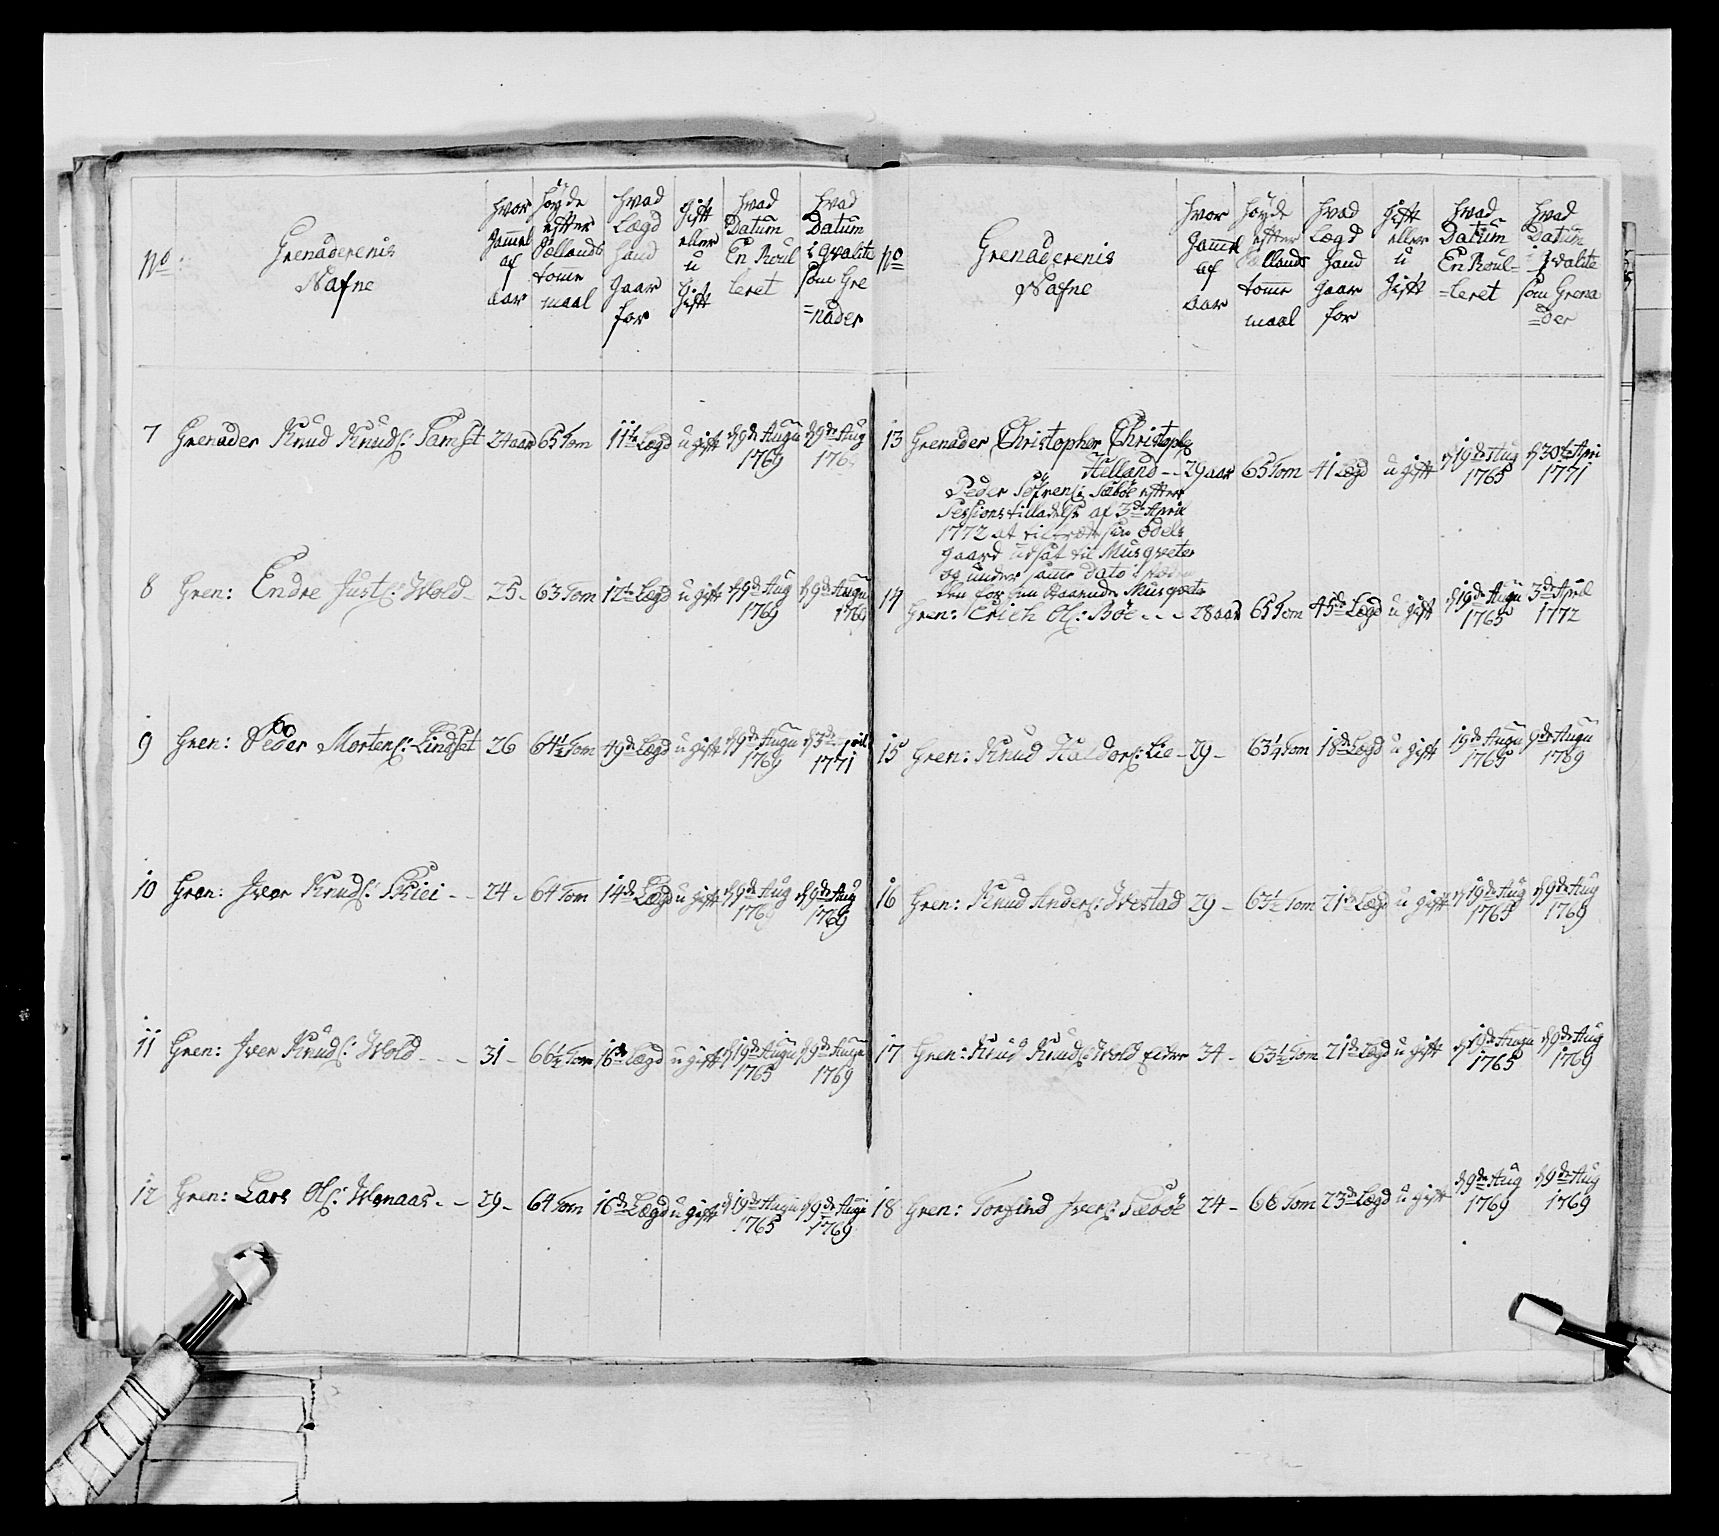 No
Grenaderenis
Nafne
hvor
gamel
af
aar
höyde
efter
Sællands
tomme
maal
hvad
Lægd
hand
gaar
for
gift
eller
u
gift
hvad
Datum
En Roul
leret
hvad
Datum
i qvalite
som Gre
=nader
7 Grenader Knud Knuds: Tamset 24 aar 65 Tom 11te Lægd u gift d 9de Augu 1769 d 9de Aug 176
8 Gren: Endre Justs: Wold - 25 - 63 Tom 12te Lægd u gift d 9de Aug 1769 d 9de Augu 1769
9 Gren: Peder Mortens: Lindset 26 64½ Tom 49de Lægd u gift d 9de Augu 1769 d 3de April 1771
10 Gren: Iver Knuds: Skiei - - 24 - 64 Tom 14de Lægd u gift d 9de Aug 1769 d 9de Aug 1769
11 Gren: Iver Knuds: Wold - - - 31 - 66½ Tom 16de Lægd u gift d 19de Augu 1765 d 9de Augu 1769
12 Gren: Lars Ols: Wonaas - - 29 - 64 Tom 16de Lægd u gift d 19de Augu 1765 d 9de Augu 1769
No
Grenaderenis
Nafne
hvor
gamel
af
aar
höyde
efter
Sællands
tomme
maal
hvad
Lægd
hand
gaar
for
gift
eller
u
gift
hvad
Datum
En Roul=
=leret
hvad
Datum
i qvalite
som Grena
=der
13 Grenader Christopher Christoph:
Helland - - 29 aar 65 Tom 41 Lægd u gift d 19de Aug 1765 d 30te Apri 1771
Peder Söfrens: Sæböe efter
Sessions tilladelse af 3de April
1772 at tiltræde sin odels
gaard udsat til Musqveter
og under samme dato i stæden
den for ham staaende Musqvete
14 Gren: Erich Ols: Böe - - - 28 aar 65 Tom 45de Lægd u gift d 19de Augu 1765 3de April 1772
15 Gren: Knud Haldors: Lie - 29 - 63¼ Tom 18de Lægd u gift 19de Augu 1765 9de Augu 1769
16 Gren: Knud Anders: Westad 29 - 63½ Tom 21de Lægd u gift d 19de Aug 1765 d 9de Aug 1769
17 Gren: Knud Knuds: Wold eider 34 - 63½ Tom 21de Lægd u gift d 19de Augu 1765 d 9de Aug 1769
18 Gren: Torfind Ivers: Sæböe 24 - 66 Tom 23de Lægd u gift d 9de Aug 1769 d 9de Aug 1769